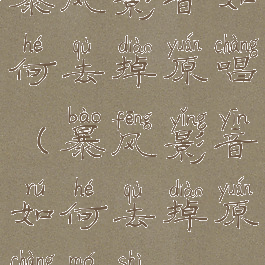 暴风影音 如
hé qù diào yuán chàng
何去掉原唱
bào fēng yǐng yīn
（暴风影音
rú hé qù diào yuán
如何去掉原
chàng mó shì